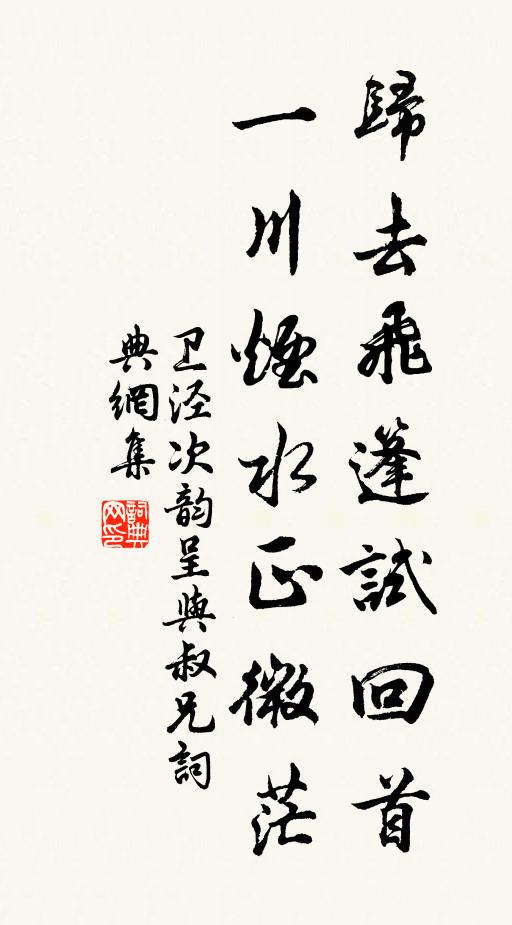 歸去飛篷試回首
一川煙水正微茫
卫泾次韵呈與叔兄詞
典網集
詞典
网印